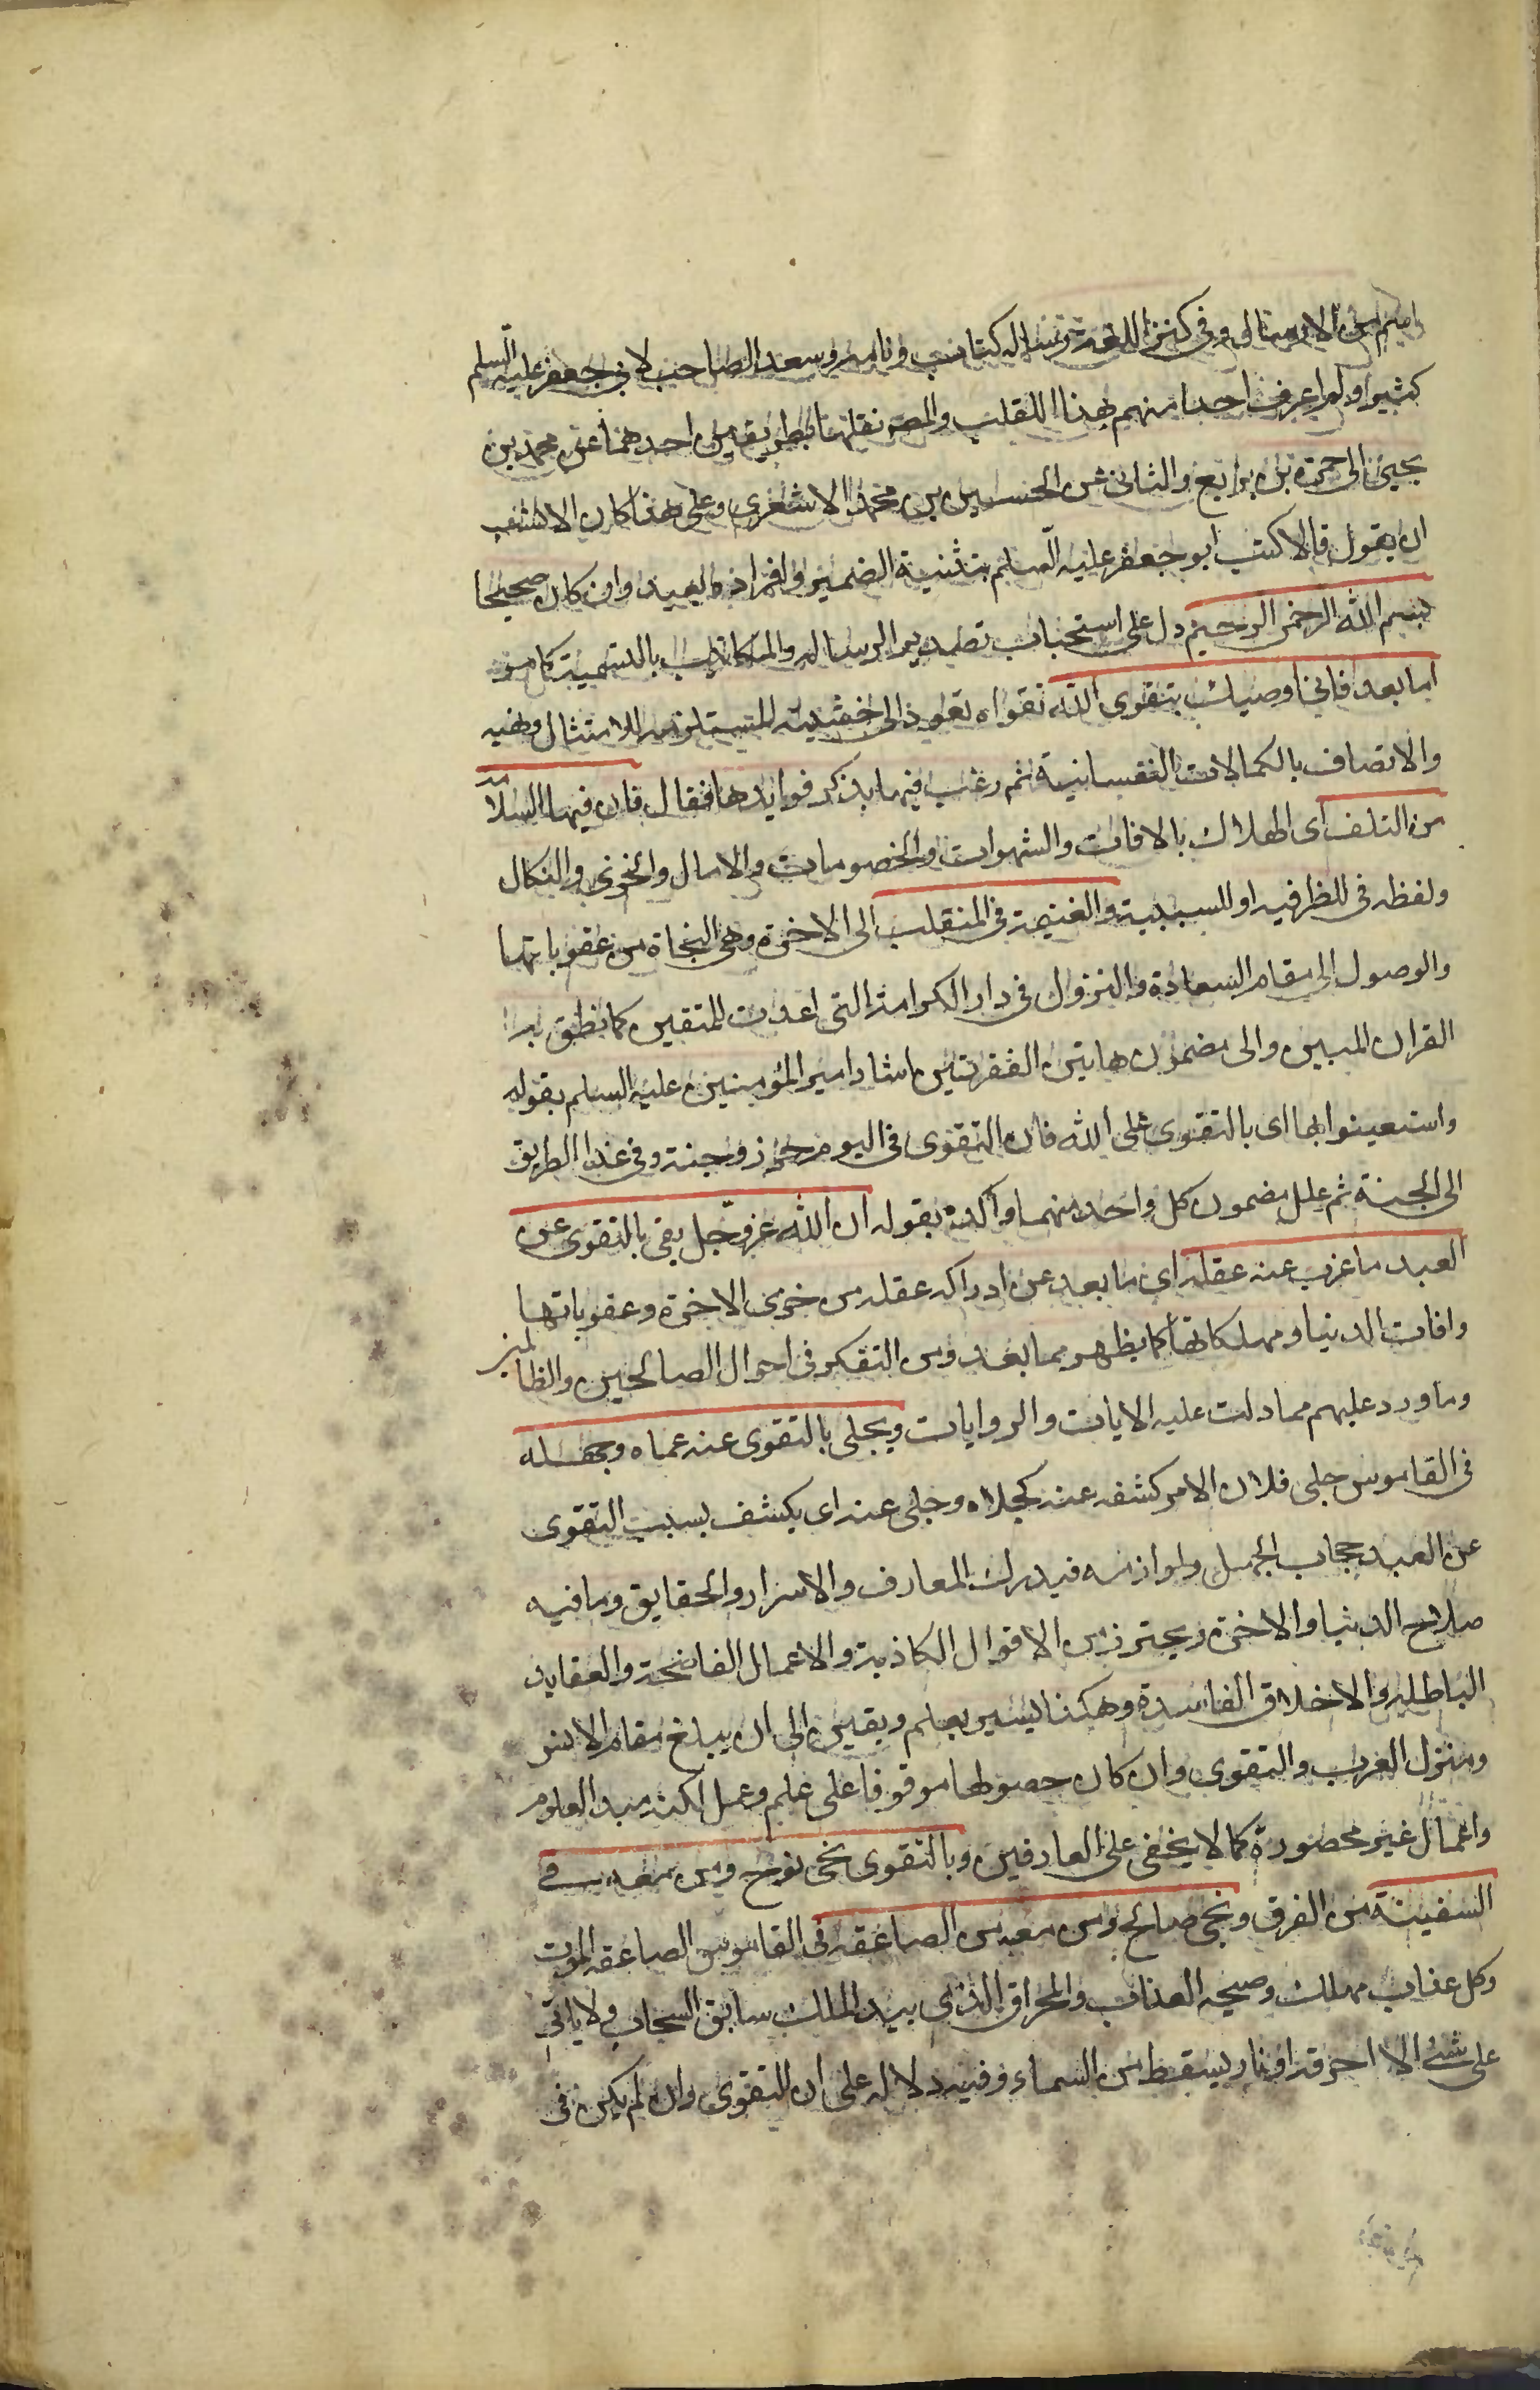 اسم من الارسال وفي كنز اللغة رساله كتابت ونامه وسعد الصاحب لابي جعفر عليه السلم
كثير ولم اعرف احدا منهم بهذا اللقلب والمصه نقلها بطريقين احدهما عن محمد بن
يحيى الى حمزة بن بزايع والثاني عن الحسين بن محمد الاشعري وعلى هذا كان الانسب
ان يقول قالا كتب ابو جعفر عليه السلم بتثنية الضمير وافراده بعيد وان كان صحيحا
بسم الله الرحمن الرحيم دل على استحباب تصدير الرساله والمكاتيب بالتسمية كما مر
اما بعد فاني اوصيك بتقوى الله تقواه تعود الى خشيته المستلزمه للامتثال ونهيه
والاتصاف بالكمالات النفسانية ثم رغب فيها بذكر فوايدها فقال فان فيها السلامة
من التلف اى الهلاك بالافات والشهوات والخصومات والامال والخزى والنكال
ولفظه في للظرفيه او للسببية والغنيمة في المنقلب الى الاخرة وهي النجاة من عقوباتها
والوصول الى مقام السعادة والنزول في دار الكرامة التى اعدت للمتقين كما نطق به
القران المبين والى مضمون هاتين الفقرتين اشار امير المؤمنين عليه السلم بقوله
واستعينوا بها اى بالتقوى على الله فان التقوى في اليوم حرز وجنة وفي غد الطريق
الى الجنة ثم علل مضمون كل واحد منهما واكده بقوله ان الله عز وجل يقى بالتقوى عن
العبد ما عزب عنه عقله اى ما بعد عن ادراكه عقله من خزى الاخرة وعقوباتها
وافات الدنيا ومهلكاتها كما يظهر مما بعد ومن التفكر في احوال الصالحين والظالمين
وما ورد عليهم مما دلت عليه الايات والروايات ويجلى بالتقوى عنه عماه وجهله
في القاموس جلى فلان الامر كشفه عنه كجلاه وجلى عنه اى يكشف بسبب التقوى
عن العبد حجاب الجهل ولوازمه فيدرك المعارف والاسرار والحقايق وما فيه
صلاح الدنيا والاخرة ويحترز من الاقوال الكاذبة والاعمال الفاضحة والعقايد
الباطله والاخلاق الفاسدة وهكذا يسير بعلم ويقين الى ان يبلغ مقام الانس
ومنزل القرب والتقوى وان كان حصولها موقوفا على علم وعمل لكنه مبدا لعلوم
واعمال غير محصورة كما لا يخفى على العارفين وبالتقوى نجى نوح ومن معه في
السفينة من الغرق ونجى صالح ومن معه من الصاعقه في القاموس الصاعقه الموت
وكل عذاب مهلك وصيحه العذاب والمخراق الذى بيد الملك سايق السحاب ولا ياتى
على شئ الا احرقه او نار يسقط من السماء وفيه دلاله على ان التقوى وان لم يكن في